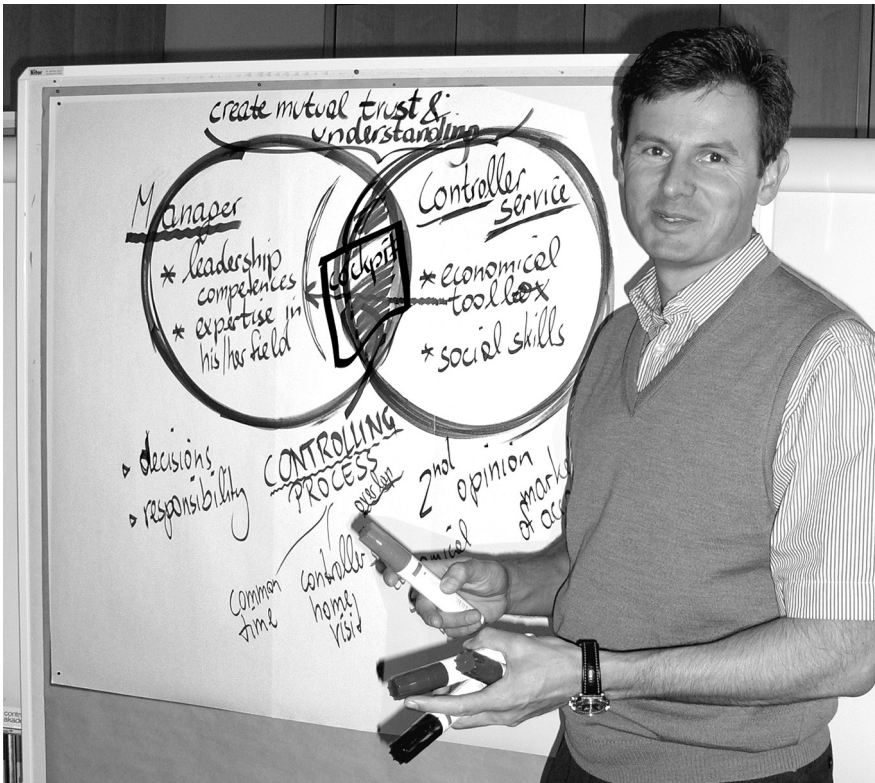 create mutual trust &
understanding
Manager
* leadership
competences
* expertise in
his/her field
cockpit
Controller
service
* economical
toolbox
* social skills
decisions
responsibility
CONTROLLING
PROCESS
overlap
common
time
controller
home
visit
2nd opinion